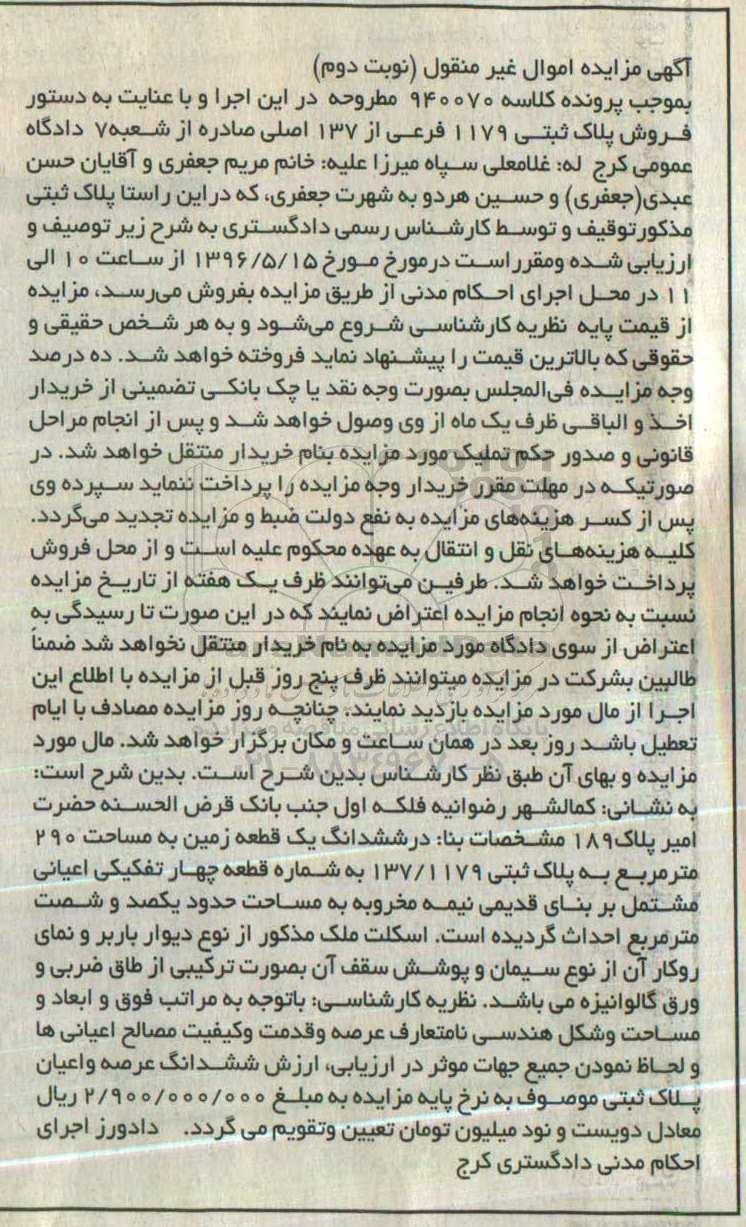 آگهی مزایده اموال غیر منقول (نوبت دوم)
بموجب پرونده کلاسه ۹۴۰۰۷۰ مطروحه در این اجرا و با عنایت به دستور
فروش پلاک ثبتی ۱۱۷۹ فرعی از ۱۳۷ اصلی صادره از شعبه۷ دادگاه
عمومی کرج له: غلامعلی سپاه میرزا علیه: خانم مریم جعفری و آقایان حسن
عبدی(جعفری) و حسین هردو به شهرت جعفری، که دراین راستا پلاک ثبتی
مذکورتوقیف و توسط کارشناس رسمی دادگستری به شرح زیر توصیف و
ارزیابی شده ومقرراست درمورخ مورخ ۱۳۹۶/۵/۱۵ از ساعت ۱۰ الی
۱۱ در محل اجرای احکام مدنی از طریق مزایده بفروش می‌رسد، مزایده
از قیمت پایه نظریه کارشناسی شروع می‌شود و به هر شخص حقیقی و
حقوقی که بالاترین قیمت را پیشنهاد نماید فروخته خواهد شد. ده درصد
وجه مزایده فی‌المجلس بصورت وجه نقد یا چک بانکی تضمینی از خریدار
اخذ و الباقی ظرف یک ماه از وی وصول خواهد شد و پس از انجام مراحل
قانونی و صدور حکم تملیک مورد مزایده بنام خریدار منتقل خواهد شد. در
صورتیکه در مهلت مقرر خریدار وجه مزایده را پرداخت ننماید سپرده وی
پس از کسر هزینه‌های مزایده به نفع دولت ضبط و مزایده تجدید می‌گردد.
کلیه هزینه‌های نقل و انتقال به عهده محکوم علیه است و از محل فروش
پرداخت خواهد شد. طرفین می‌توانند ظرف یک هفته از تاریخ مزایده
نسبت به نحوه انجام مزایده اعتراض نمایند که در این صورت تا رسیدگی به
اعتراض از سوی دادگاه مورد مزایده به نام خریدار منتقل نخواهد شد ضمناً
طالبین بشرکت در مزایده میتوانند ظرف پنج روز قبل از مزایده با اطلاع این
اجرا از مال مورد مزایده بازدید نمایند. چنانچه روز مزایده مصادف با ایام
تعطیل باشد روز بعد در همان ساعت و مکان برگزار خواهد شد. مال مورد
مزایده و بهای آن طبق نظر کارشناس بدین شرح است. بدین شرح است:
به نشانی: کمالشهر رضوانیه فلکه اول جنب بانک قرض الحسنه حضرت
امیر پلاک۱۸۹ مشخصات بنا: درششدانگ یک قطعه زمین به مساحت ۲۹۰
مترمربع به پلاک ثبتی ۱۳۷/۱۱۷۹ به شماره قطعه چهار تفکیکی اعیانی
مشتمل بر بنای قدیمی نیمه مخروبه به مساحت حدود یکصد و شصت
مترمربع احداث گردیده است. اسکلت ملک مذکور از نوع دیوار باربر و نمای
روکار آن از نوع سیمان و پوشش سقف آن بصورت ترکیبی از طاق ضربی و
ورق گالوانیزه می باشد. نظریه کارشناسی: باتوجه به مراتب فوق و ابعاد و
مساحت وشکل هندسی نامتعارف عرصه وقدمت وکیفیت مصالح اعیانی ها
و لحاظ نمودن جمیع جهات موثر در ارزیابی، ارزش ششدانگ عرصه واعیان
پلاک ثبتی موصوف به نرخ پایه مزایده به مبلغ ۲/۹۰۰/۰۰۰/۰۰۰ ریال
معادل دویست و نود میلیون تومان تعیین وتقویم می گردد. دادورز اجرای
احکام مدنی دادگستری کرج